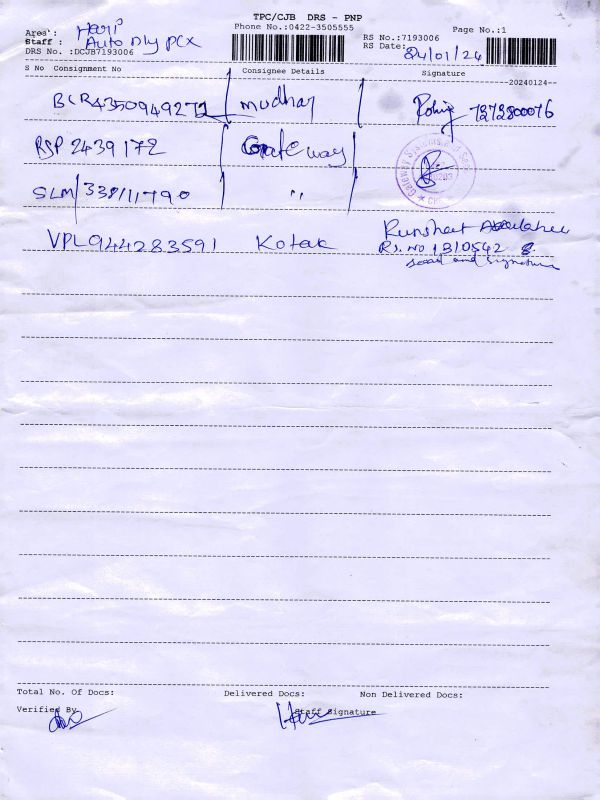 TPC/CJB DRS - PNP
Phone No.:0422-3505555
Page No.:1
Area : Hari
Staff : Auto Dly PCX
DRS No. :DCJB7193006
RS No.:7193006
RS Date: 24/01/24
S No Consignment No Consignee Details Signature
20240124
BLR4350949272 mudhay 7272800076
RSP 2439172 Gateway
SLM/338111790 "
VPL944283591 Kotak
Rs. No 1310542
seal and signature
Total No. Of Docs: Delivered Docs: Non Delivered Docs:
Verified By Staff Signature